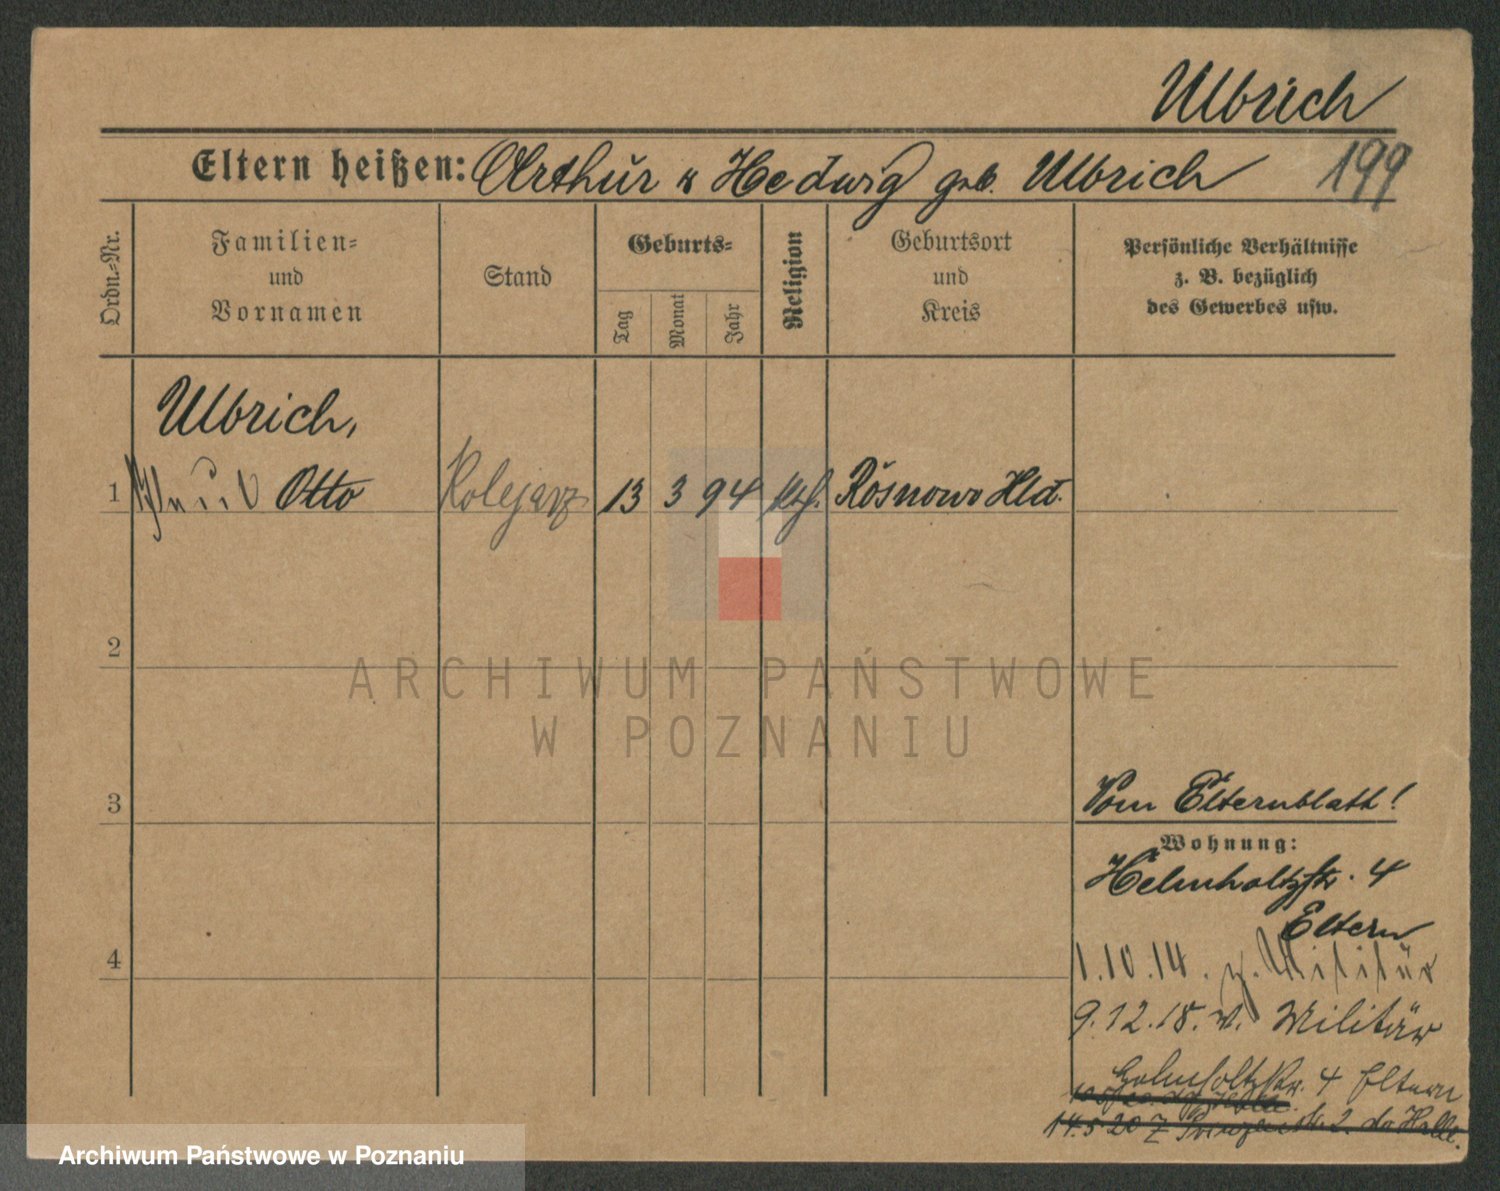 Ulbrich
Eltern heißen: Arthur u Hedwig geb. Ulbrich 199
Ordn.-Nr.
Familien-
und
Vornamen
Stand
Geburts-
Tag
Monat
Jahr
Religion
Geburtsort
und
Kreis
Persönliche Verhältnisse
z. B. bezüglich
des Gewerbes usw.
Ulbrich,
1 Otto Kolejarz 13 3 94 Rosnowo Hld.
2
3
4
Vom Elternblatt!
Wohnung:
Helmholtzstr. 4
Eltern
1.10.14. z. Militär
9.12.18. v. Militär
Helmholtzstr. 4 Eltern
14.5.20 Z
ARCHIWUM PAŃSTWOWE
W POZNANIU
Archiwum Państwowe w Poznaniu